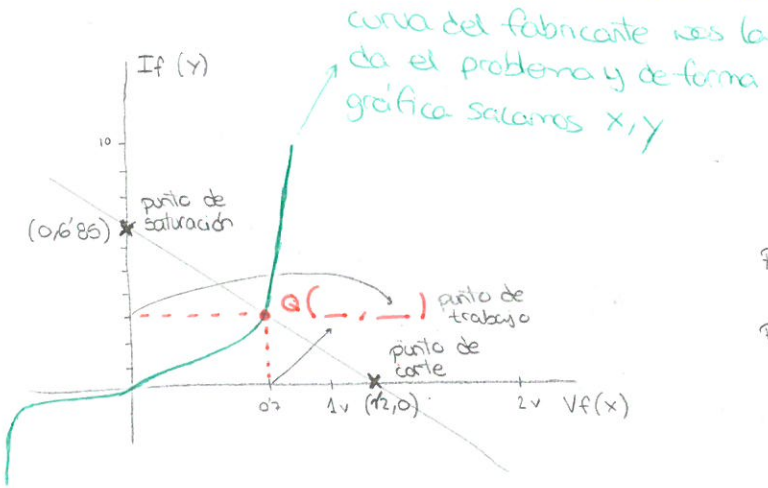 curva del fabricante nos la
da el problema y de forma
gráfica sacamos x,y
If (Y)
10
punto de
saturación
(0,6'85)
Q( — , — )
punto de
trabajo
punto de
corte
0'7
1v
(1'2,0)
2v
Vf(x)